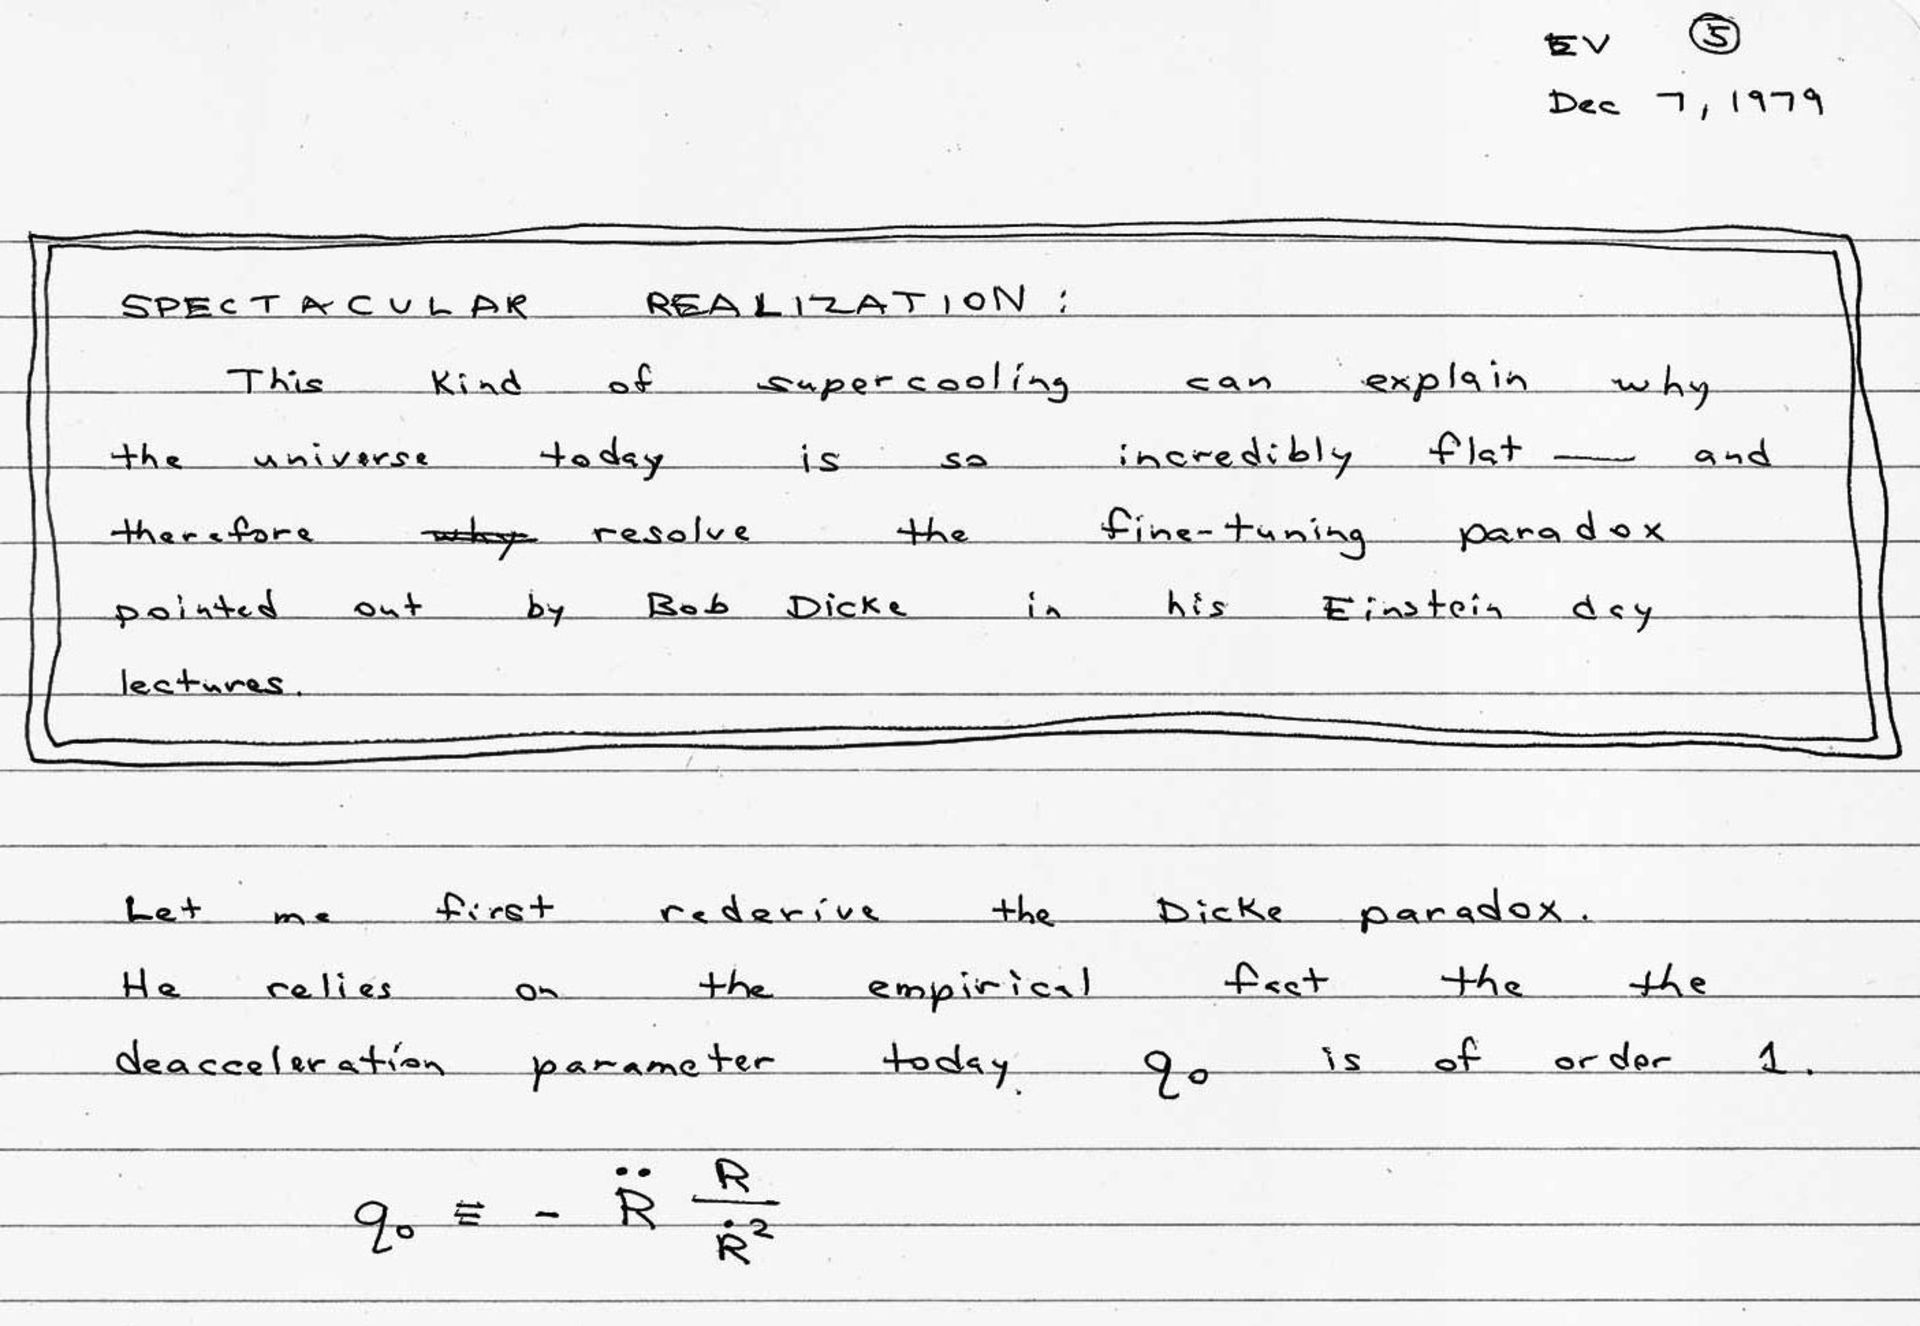 EV ⑤
Dec 7, 1979
SPECTACULAR REALIZATION:
This kind of supercooling can explain why
the universe today is so incredibly flat — and
therefore ~~why~~ resolve the fine-tuning paradox
pointed out by Bob Dicke in his Einstein day
lectures.
Let me first rederive the Dicke paradox.
He relies on the empirical fact the the
deacceleration parameter today q₀ is of order 1.
q₀ ≡ - R̈ R/Ṙ²